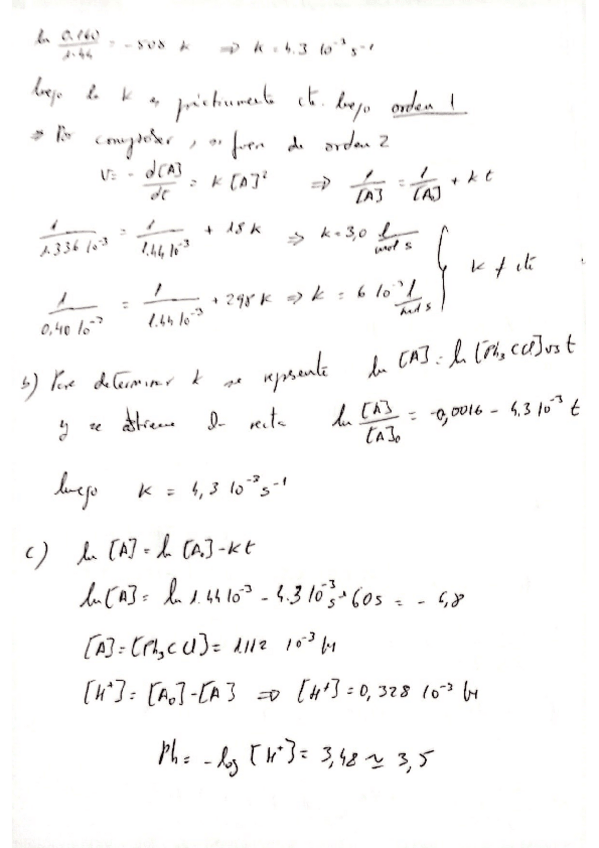 ln 0.160/1.44 = -508 k ⇒ k = 4.3 10⁻³ s⁻¹
luego la k es prácticamente cte. luego orden 1
⇒ Por comprobar, si fuera de orden 2
V = - d[A]/dt = k [A]² ⇒ 1/[A] = 1/[A₀] + kt
1/1.336 10⁻³ = 1/1.44 10⁻³ + 18 k ⇒ k = 3,0 l/mol s
1/0,40 10⁻³ = 1/1.44 10⁻³ + 298 k ⇒ k = 6 10⁻¹ l/mol s } k ≠ cte
b) Para determinar k se representa ln [A] = ln [Ph₃CCl] vs t
y se obtiene la recta ln [A]/[A]₀ = -0,0016 - 4,3 10⁻³ t
luego k = 4,3 10⁻³ s⁻¹
c) ln [A] = ln [A₀] - kt
ln [A] = ln 1.44 10⁻³ - 4.3 10⁻³ s⁻¹ 60 s = - 6,8
[A] = [Ph₃CCl] = 1.112 10⁻³ M
[H⁺] = [A₀] - [A] ⇒ [H⁺] = 0,328 10⁻³ M
Ph = -log [H⁺] = 3,48 ≃ 3,5